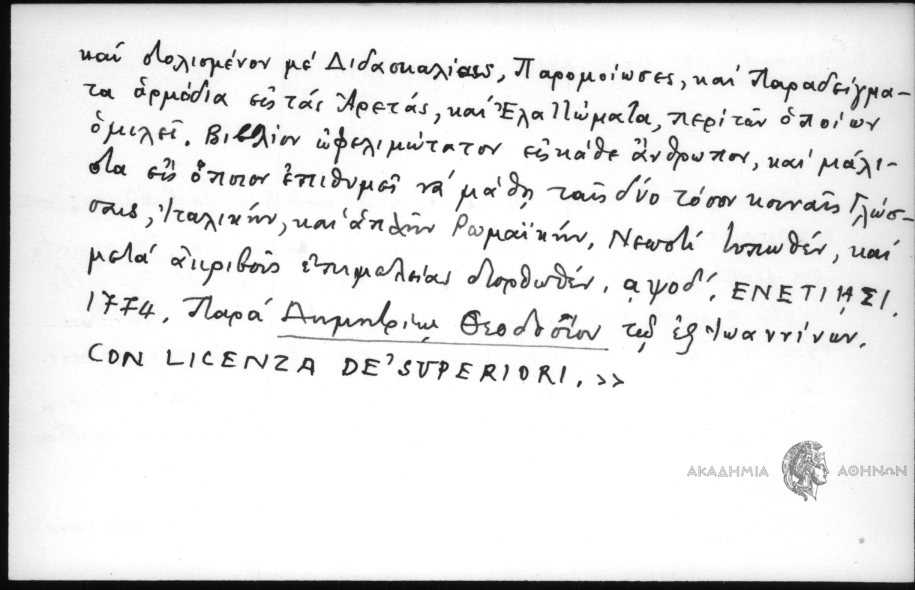 καί στολισμένον μέ Διδασκαλίαις, Παρομοίωσες, καί Παραδείγμα-
τα ἁρμόδια εἰς τάς Ἀρετάς, καί Ἐλαττώματα, περί τῶν ὁποίων
ὁμιλεῖ. Βιβλίον ὠφελιμώτατον εἰς κάθε ἄνθρωπον, καί μάλι-
στα εἰς ὅποιον ἐπιθυμεῖ νά μάθῃ ταῖς δύο τόσον κοιναῖς Γλώσ-
σαις, Ἰταλικήν, καί ἁπλῆν Ρωμαϊκήν. Νεωστί τυπωθέν, καί
μετά ἀκριβοῦς ἐπιμελείας διορθωθέν. αψοδ΄. ΕΝΕΤΙΗΣΙ.
1774. Παρά Δημητρίῳ Θεοδοσίου τῷ ἐξ Ἰωαννίνων.
CON LICENZA DE' SUPERIORI. >>
ΑΚΑΔΗΜΙΑ ΑΘΗΝΩΝ